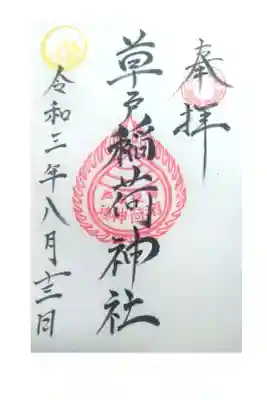 奉拝
草戸稲荷神社
令和三年八月十三日